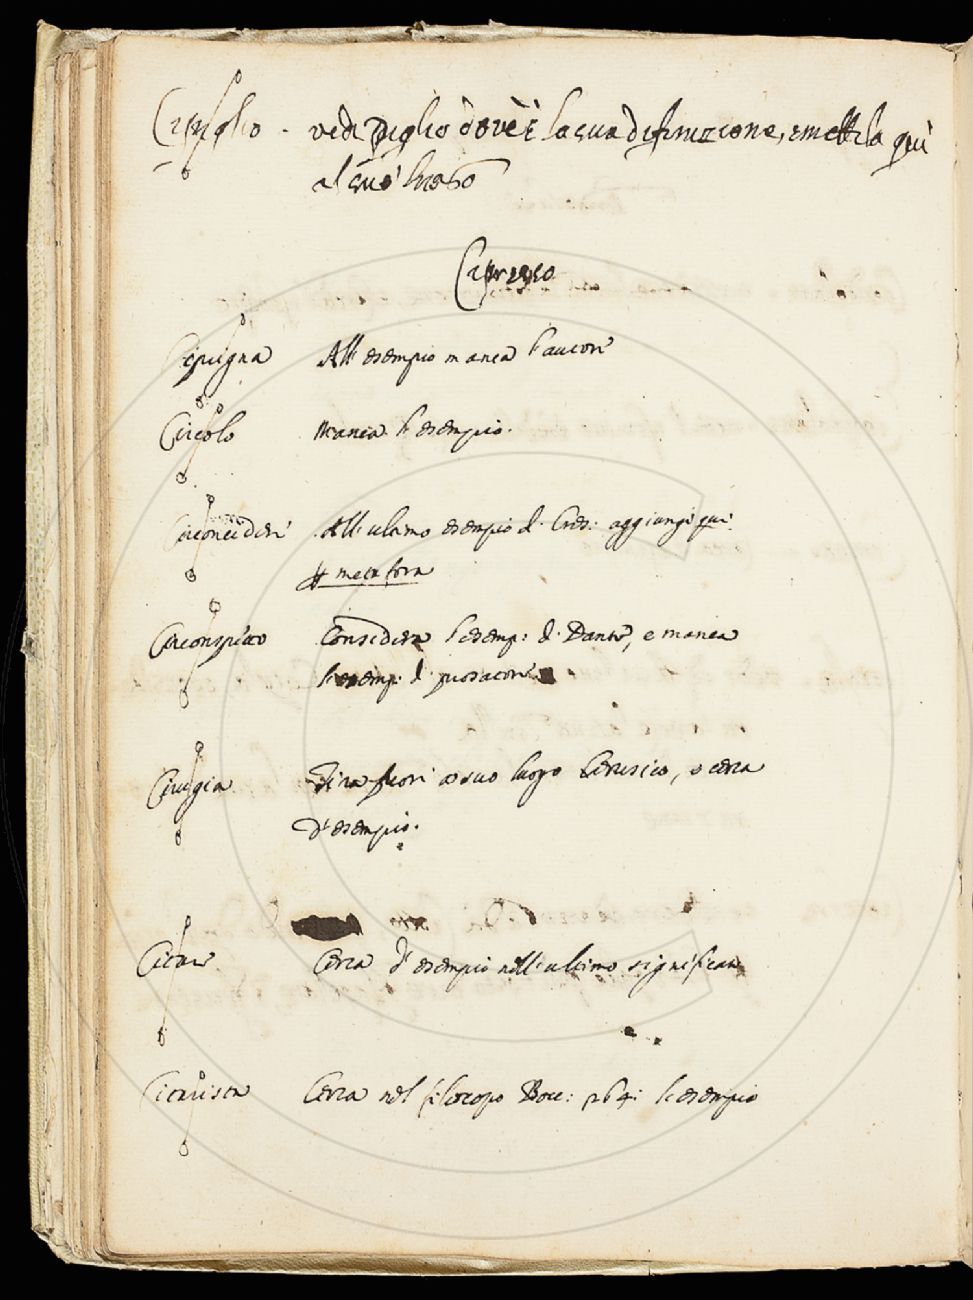 Cipiglio - vedi Piglio dov'è la sua difinizione, e mettila qui
al suo luogo
Cipresso
Cipigna All'esempio manca l'autore
Circolo manca l'esempio.
Circoncidere All'ultimo esempio d. Cres: aggiungi qui
# metafora
Circonspetto Considera l'esemp: d. Dante, e manca
l'esemp: d. prosatore
Cirugia Tira fuori a suo luogo Cirusico, e cerca
d'esempio.
Citare Cerca d'esempio nell'ultimo significato
Citarista Cerca nel filocopo Bocc: l'esempio